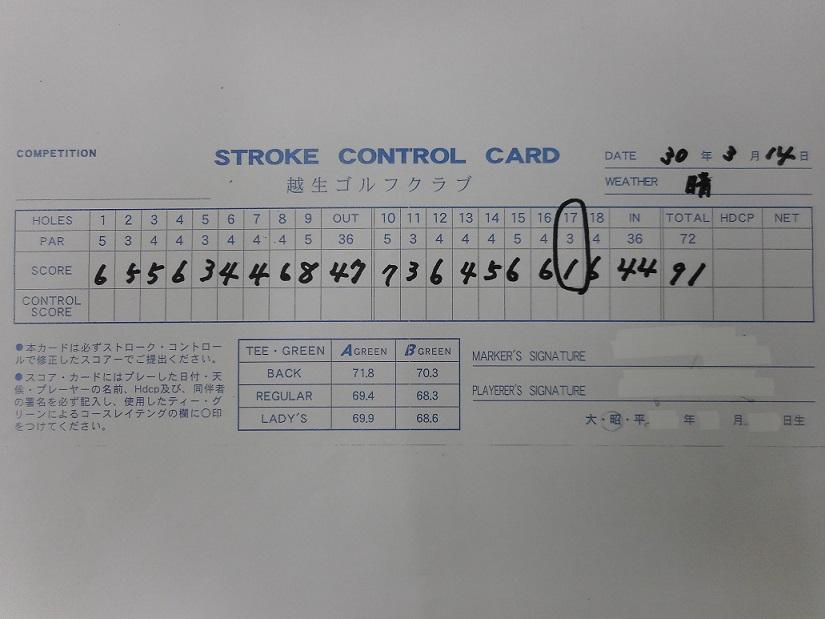 COMPETITION
STROKE CONTROL CARD
越生ゴルフクラブ
DATE 30 年 3 月 14 日
WEATHER 晴
HOLES 1 2 3 4 5 6 7 8 9 OUT 10 11 12 13 14 15 16 17 18 IN TOTAL HDCP NET
PAR 5 3 4 4 3 4 4 4 5 36 5 3 4 4 4 5 4 3 4 36 72
SCORE 6 5 5 6 3 4 4 6 8 47 7 3 6 4 5 6 6 1 6 44 91
CONTROL SCORE
●本カードは必ずストローク・コントロー
ルで修正したスコアーでご提出ください。
●スコア・カードにはプレーした日付・天
候・プレーヤーの名前、Hdcp及び、同伴者
の署名を必ず記入し、使用したティー・グ
リーンによるコースレイテングの欄に〇印
をつけてください。
TEE・GREEN A GREEN B GREEN
BACK 71.8 70.3
REGULAR 69.4 68.3
LADY'S 69.9 68.6
MARKER'S SIGNATURE
PLAYERER'S SIGNATURE
大・昭・平 年 月 日生